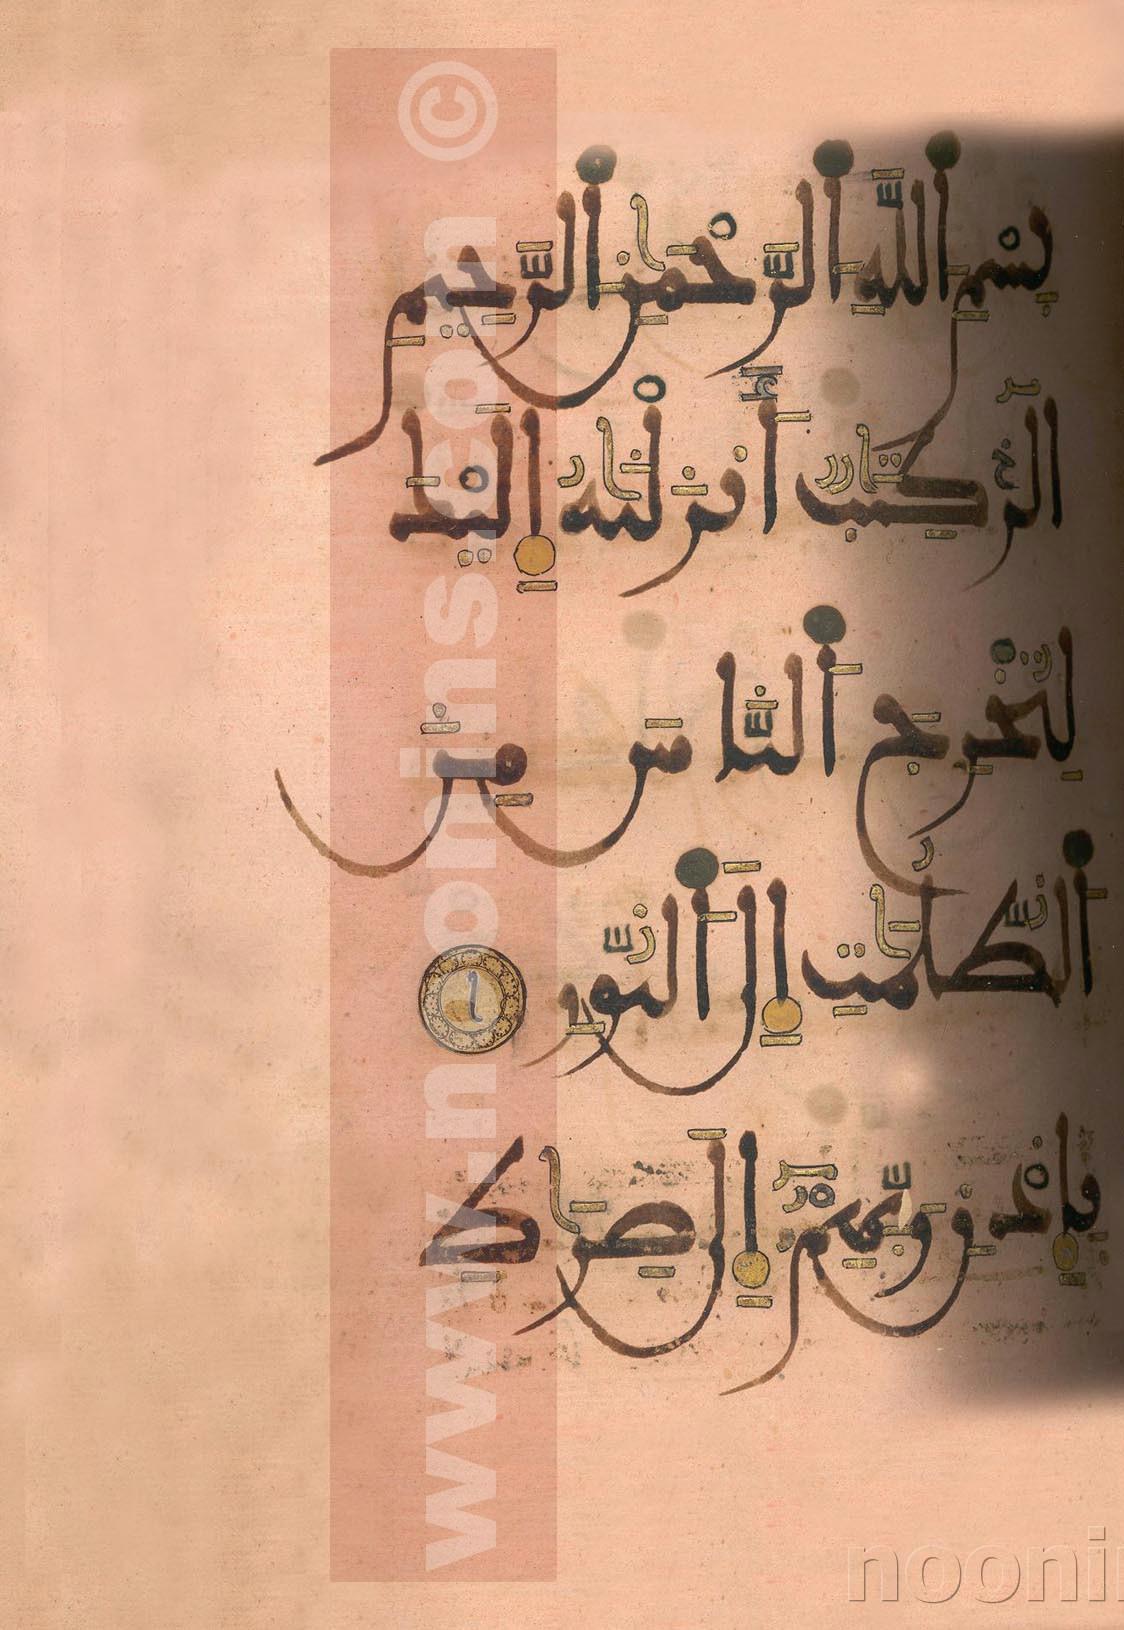 بِسْمِ ٱللَّهِ ٱلرَّحْمَٰنِ ٱلرَّحِيمِ
الٓر كِتَٰبٌ أَنزَلْنَٰهُ إِلَيْكَ
لِتُخْرِجَ ٱلنَّاسَ مِنَ
ٱلظُّلُمَٰتِ إِلَى ٱلنُّورِ ١
بِإِذْنِ رَبِّهِمْ إِلَىٰ صِرَٰطِ
www.noonins.com ©
noonin